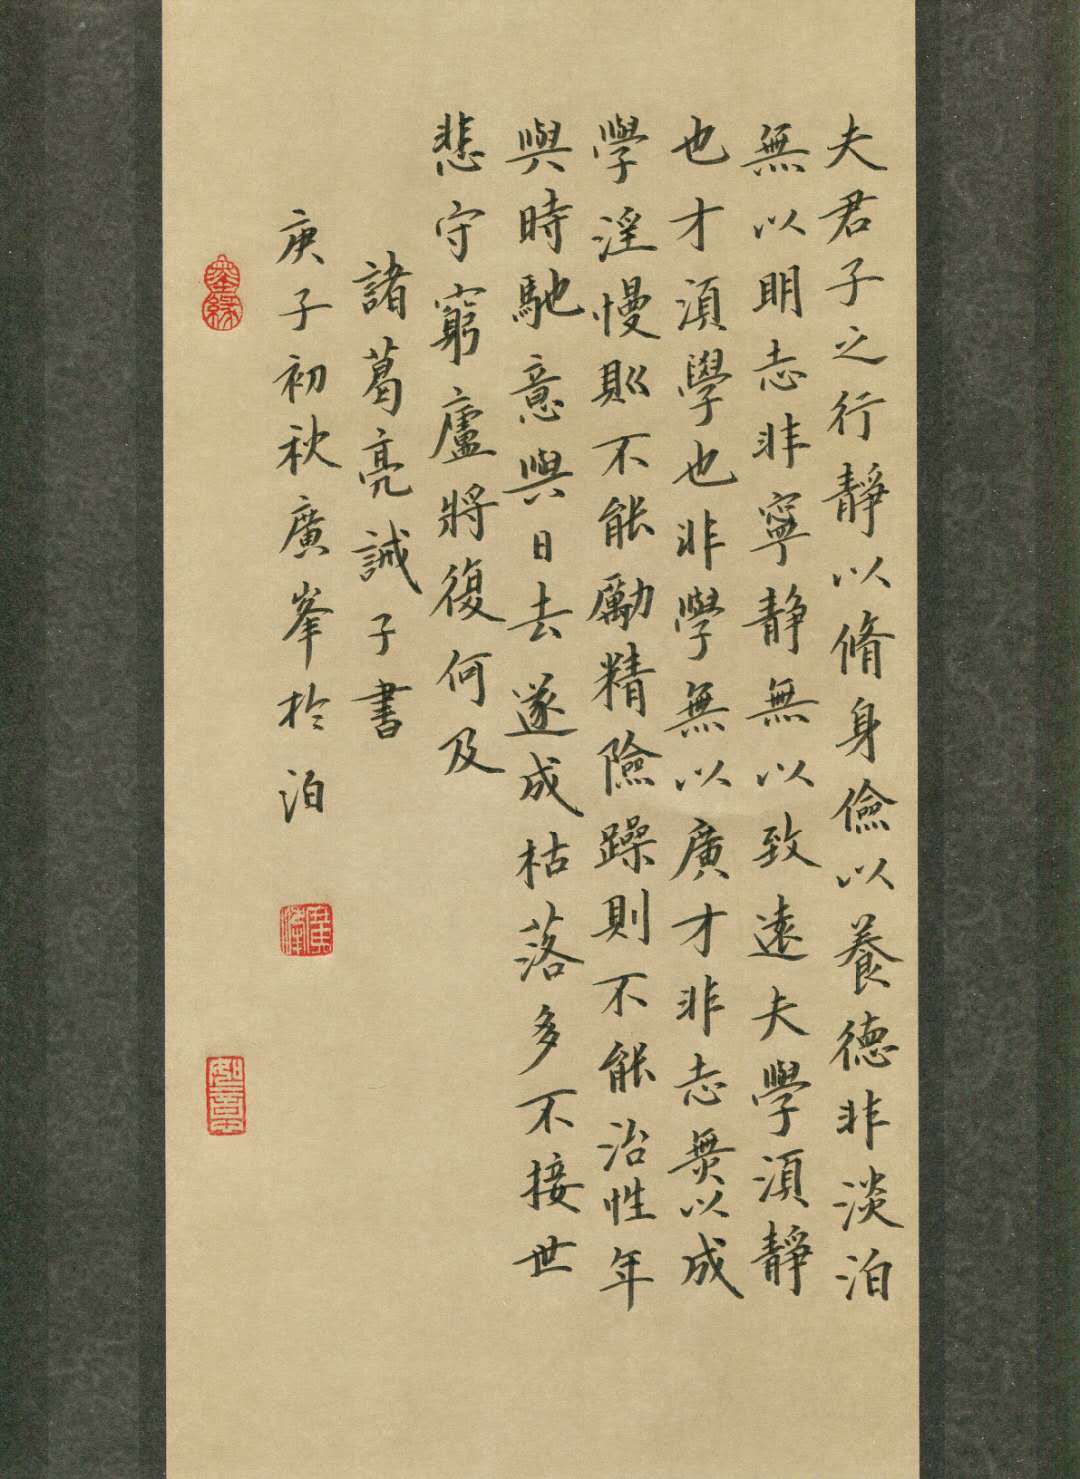 夫君子之行靜以脩身儉以養德非淡泊
無以明志非寧静無以致遠夫學湏靜
也才湏學也非學無以廣才非志無以成
學淫慢則不能勵精險躁則不能治性年
與時馳意與日去遂成枯落多不接世
悲守窮廬將復何及
諸葛亮誡子書
庚子初秋廣峯於泊
墨緣